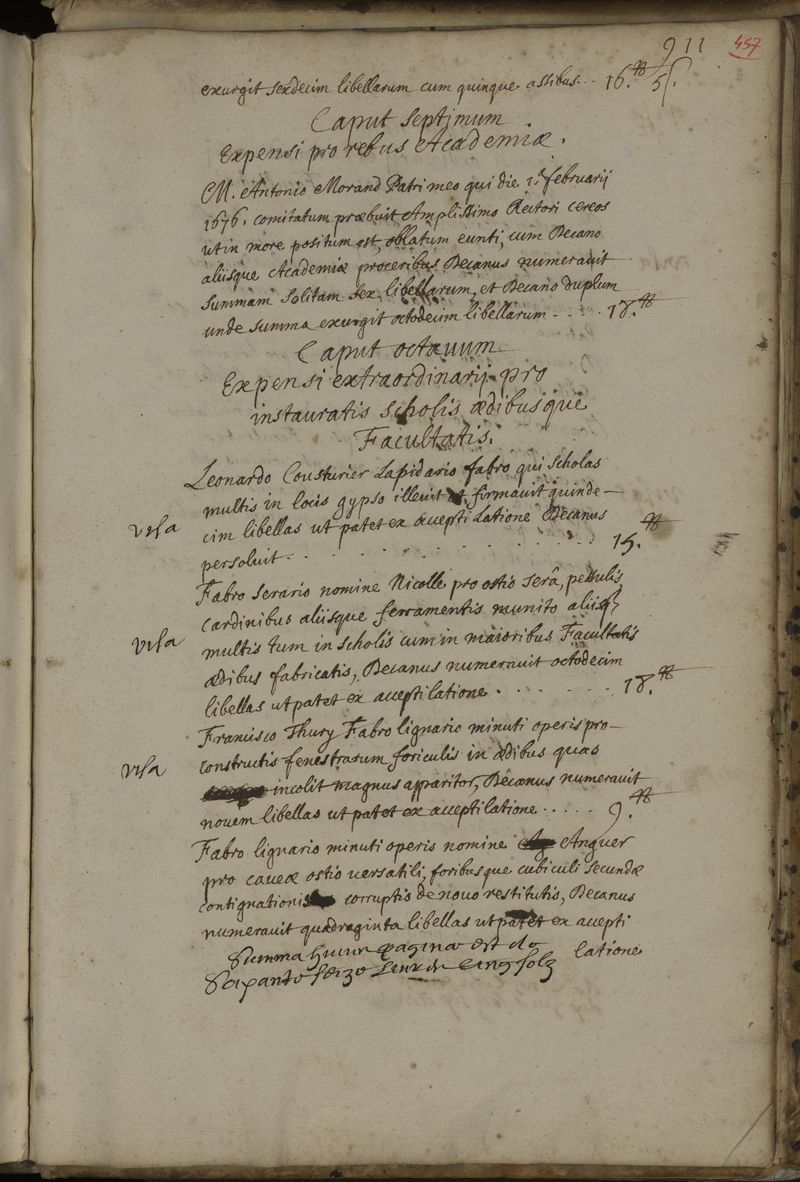 911 457
exurgit sexdecim libellarum cum quinque assibus... 16.tt 5s.
Caput Septimum
Expensi pro rebus Academiæ.
M. Antonio Morand Patri meo qui die 1.a februarij
1676. comitatum præbuit Amplissimo Rectori cereos
ut in more positum est, oblatum eunti, cum Decano
aliisque Academiæ proceribus Decanus numerauit
summam solitam sex libellarum, et Decano duplum
unde summa exurgit octodecim libellarum - . . . 18.tt
Caput octauum
Expensi extraordinarij pro
instauratis scholis ædibusque
Facultatis.
Leonardo Cousturier Lapidario fabro qui scholas
multis in locis gypso illeuit et firmauit quinde-
visa cim libellas ut patet ex accepti Latione Decanus
persoluit . . . . . . . . . . . 15.tt
Fabro serario nomine Nicolle pro ostio serâ, pessulis
cardinibus aliisque ferramentis munito aliisq3
visa multis tum in scholis cum in maioribus Facultatis
ædibus fabricatis, Decanus numerauit octodecim
libellas ut patet ex acceptilatione . . . . . . 18.tt
Francisco Thury Fabro lignario minuti operis pro-
visa constructis fenestrarum foriculis in ædibus quas
incolit magnus apparitor, Decanus numerauit
nouem libellas ut patet ex acceptilatione . . . . . 9.tt
Fabro lignario minuti operis nomine Anguer
pro caueæ ostio uersatili, foribusque cubiculi secundæ
contignationis corruptis de nouo restitutis, Decanus
numerauit quadraginta libellas ut patet ex accepti
latione
Summa huius paginæ est de
Soixante seize Liures cinq solz